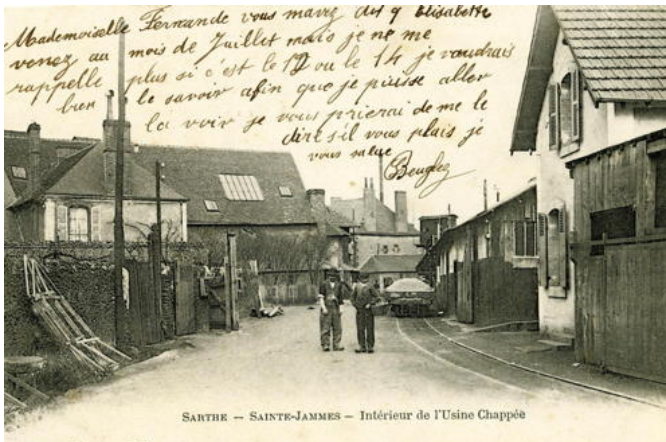 Mademoiselle Fernande vous mavez dit q Elisabette
venez au mois de Juillet mais je ne me
rappelle plus si c'est le 12 ou le 14 je voudrais
bien le savoir afin que je puisse aller
la voir je vous prierai de me le
dire s'il vous plais je
vous salue
SARTHE — SAINTE-JAMMES — Intérieur de l'Usine Chappée